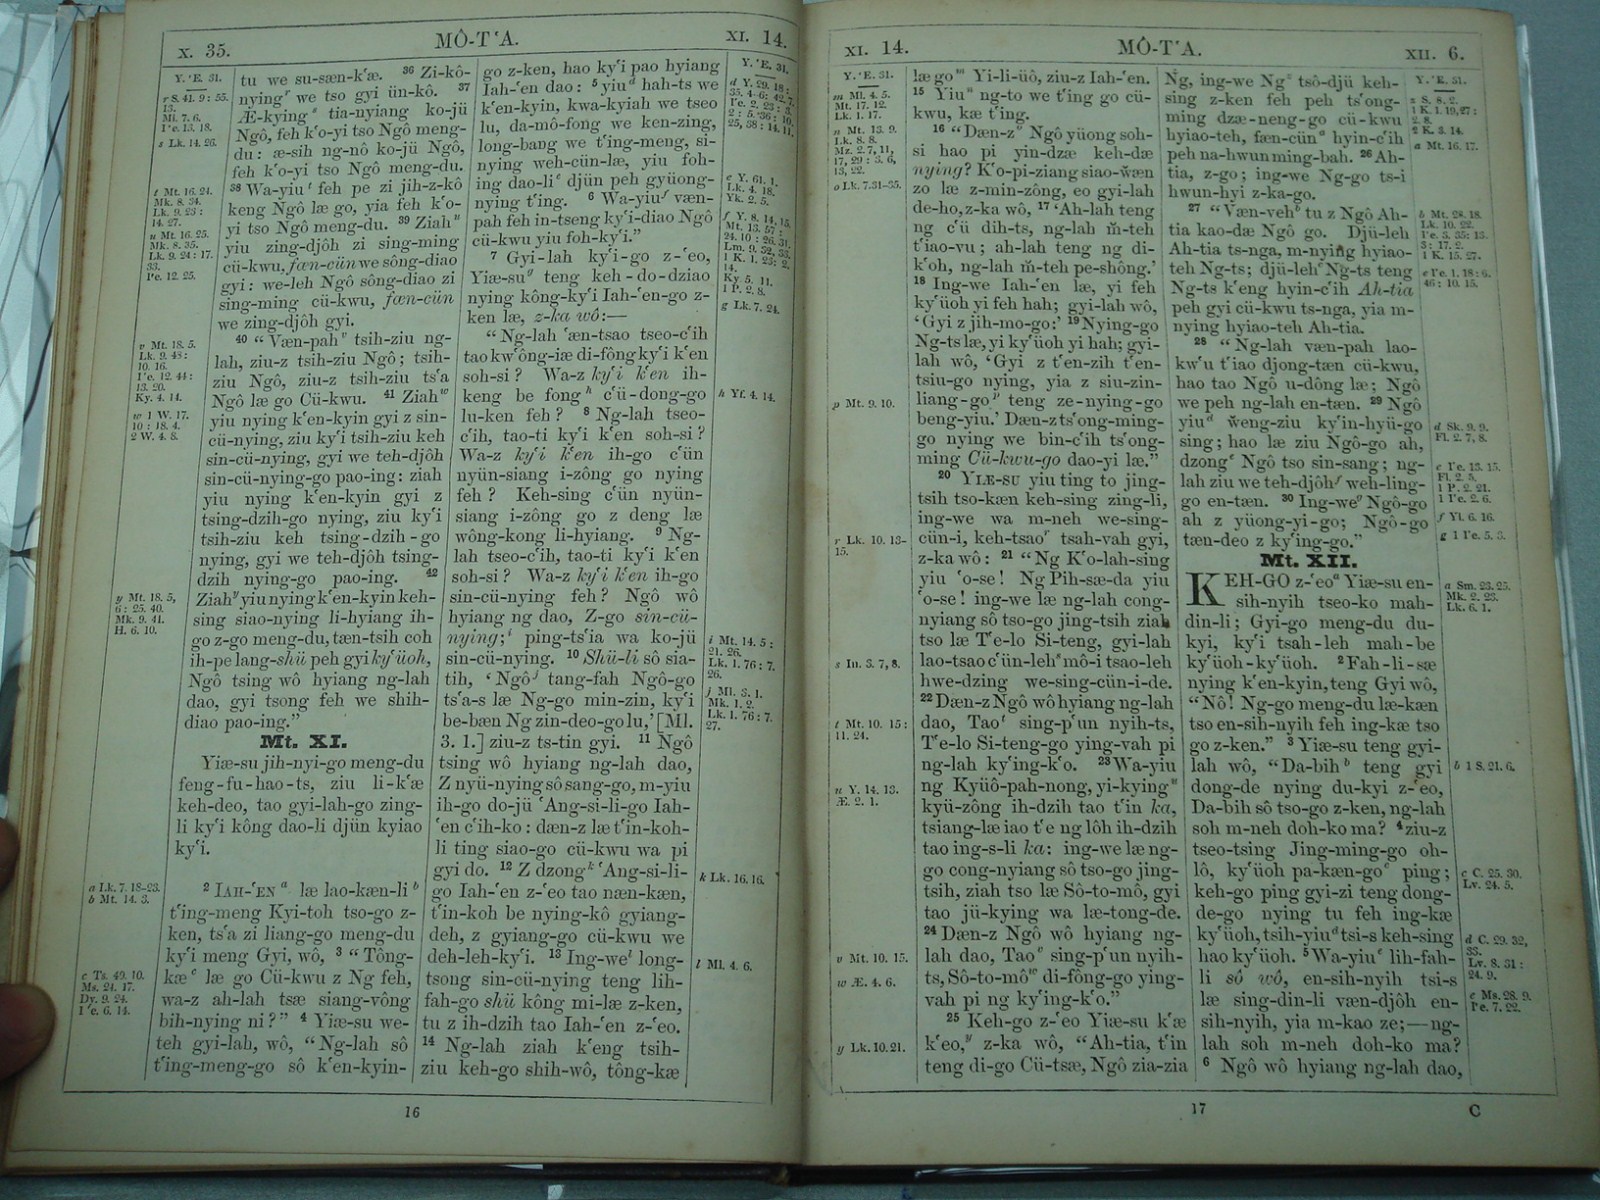 X. 35.
MÔ-T‘A.
XI. 14.
tu we su-sæn-k‘æ. 36 Zi-kô-
nying r we tso gyi ün-kô. 37
Æ-kying s tia-nyiang ko-jü
Ngô, feh k‘o-yi tso Ngô meng-
du: æ-sih ng-nô ko-jü Ngô,
feh k‘o-yi tso Ngô meng-du.
38 Wa-yiu t feh pe zi jih-z-kô
keng Ngô læ go, yia feh k‘o-
yi tso Ngô meng-du. 39 Ziah u
yiu zing-djôh zi sing-ming
cü-kwu, fæn-cün we sông-diao
gyi: we-leh Ngô sông-diao zi
sing-ming cü-kwu, fæn-cün
we zing-djôh gyi.
40 “Væn-pah v tsih-ziu ng-
lah, ziu-z tsih-ziu Ngô; tsih-
ziu Ngô, ziu-z tsih-ziu ts‘a
Ngô læ go Cü-kwu. 41 Ziah w
yiu nying k‘en-kyin gyi z sin-
cü-nying, ziu ky‘i tsih-ziu keh
sin-cü-nying, gyi we teh-djôh
sin-cü-nying-go pao-ing: ziah
yiu nying k‘en-kyin gyi z
tsing-dzih-go nying, ziu ky‘i
tsih-ziu keh tsing-dzih-go
nying, gyi we teh-djôh tsing-
dzih nying-go pao-ing. 42
Ziah y yiu nying k‘en-kyin keh-
sing siao-nying li-hyiang ih-
go z-go meng-du, tæn-tsih coh
ih-pe lang-shü peh gyi ky‘üoh,
Ngô tsing wô hyiang ng-lah
dao, gyi tsong feh we shih-
diao pao-ing.”
Mt. XI.
Yiæ-su jih-nyi-go meng-du
feng-fu-hao-ts, ziu li-k‘æ
keh-deo, tao gyi-lah-go zing-
li ky‘i kông dao-li djün kyiao
ky‘i.
2 IAH-‘EN a læ lao-kæn-li b
t‘ing-meng Kyi-toh tso-go z-
ken, ts‘a zi liang-go meng-du
ky‘i meng Gyi, wô, 3 “Tông-
kæ c læ go Cü-kwu z Ng feh,
wa-z ah-lah tsæ siang-vông
bih-nying ni?” 4 Yiæ-su we-
teh gyi-lah, wô, “Ng-lah sô
t‘ing-meng-go sô k‘en-kyin-
go z-ken, hao ky‘i pao hyiang
Iah-‘en dao: 5 yiu d hah-ts we
k‘en-kyin, kwa-kyiah we tseo
lu, da-mô-fong we ken-zing,
long-bang we t‘ing-meng, si-
nying weh-cün-læ, yiu foh-
ing dao-li e djün peh gyüong-
nying t‘ing. 6 Wa-yiu f væn-
pah feh in-tseng ky‘i-diao Ngô
cü-kwu yiu foh-ky‘i.”
7 Gyi-lah ky‘i-go z-‘eo,
Yiæ-su g teng keh-do-dziao
nying kông-ky‘i Iah-‘en-go z-
ken læ, z-ka wô:—
“Ng-lah ‘æn-tsao tseo-c‘ih
tao kw‘ông-iæ di-fông ky‘i k‘en
soh-si? Wa-z ky‘i k‘en ih-
keng be fong h c‘ü-dong-go
lu-ken feh? 8 Ng-lah tseo-
c‘ih, tao-ti ky‘i k‘en soh-si?
Wa-z ky‘i k‘en ih-go c‘ün
nyün-siang i-zông go nying
feh? Keh-sing c‘ün nyün-
siang i-zông go z deng læ
wông-kong li-hyiang. 9 Ng-
lah tseo-c‘ih, tao-ti ky‘i k‘en
soh-si? Wa-z ky‘i k‘en ih-go
sin-cü-nying feh? Ngô wô
hyiang ng dao, Z-go sin-cü-
nying; i ping-ts‘ia wa ko-jü
sin-cü-nying. 10 Shü-li sô sia-
tih, ‘Ngô j tang-fah Ngô-go
ts‘a-s læ Ng-go min-zin, ky‘i
be-bæn Ng zin-deo-go lu,’ [Ml.
3. 1.] ziu-z ts-tin gyi. 11 Ngô
tsing wô hyiang ng-lah dao,
Z nyü-nying sô sang-go, m-yiu
ih-go do-jü ‘Ang-si-li-go Iah-
‘en c‘ih-ko: dæn-z læ t‘in-koh-
li ting siao-go cü-kwu wa pi
gyi do. 12 Z dzong k ‘Ang-si-li-
go Iah-‘en z-‘eo tao næn-kæn,
t‘in-koh be nying-kô gyiang-
deh, z gyiang-go cü-kwu we
deh-leh-ky‘i. 13 Ing-we l long-
tsong sin-cü-nying teng lih-
fah-go shü kông mi-læ z-ken,
tu z ih-dzih tao Iah-‘en z-‘eo.
14 Ng-lah ziah k‘eng tsih-
ziu keh-go shih-wô, tông-kæ
16
XI. 14.
MÔ-T‘A.
XII. 6.
læ go m Yi-li-üô, ziu-z Iah-‘en.
15 Yiu n ng-to we t‘ing go cü-
kwu, kæ t‘ing.
16 “Dæn-z o Ngô yüong soh-
si hao pi yin-dzæ keh-dæ
nying? K‘o-pi-ziang siao-w̆æn
zo læ z-min-zông, eo gyi-lah
de-ho, z-ka wô, 17 ‘Ah-lah teng
ng c‘ü dih-ts, ng-lah m̆-teh
t‘iao-vu; ah-lah teng ng di-
k‘oh, ng-lah m̆-teh pe-shông.’
18 Ing-we Iah-‘en læ, yi feh
ky‘üoh yi feh hah; gyi-lah wô,
‘Gyi z jih-mo-go:’ 19 Nying-go
Ng-ts læ, yi ky‘üoh yi hah; gyi-
lah wô, ‘Gyi z t‘en-zih t‘en-
tsiu-go nying, yia z siu-zin-
liang-go p teng ze-nying-go
beng-yiu.’ Dæn-z ts‘ong-ming-
go nying we bin-c‘ih ts‘ong-
ming Cü-kwu-go dao-yi læ.”
20 YIÆ-SU yiu ting to jing-
tsih tso-kæn keh-sing zing-li,
ing-we wa m-neh we-sing-
cün-i, keh-tsao r tsah-vah gyi,
z-ka wô: 21 “Ng K‘o-lah-sing
yiu ‘o-se! Ng Pih-sæ-da yiu
‘o-se! ing-we læ ng-lah cong-
nyiang sô tso-go jing-tsih ziah
tso læ T‘e-lo Si-teng, gyi-lah
lao-tsao c‘ün-leh s mô-i tsao-leh
hwe-dzing we-sing-cün-i-de.
22 Dæn-z Ngô wô hyiang ng-lah
dao, Tao t sing-p‘un nyih-ts,
T‘e-lo Si-teng-go ying-vah pi
ng-lah ky‘ing-k‘o. 23 Wa-yiu
ng Kyüô-pah-nong, yi-kying u
kyü-zông ih-dzih tao t‘in ka,
tsiang-læ iao t‘e ng lôh ih-dzih
tao ing-s-li ka: ing-we læ ng-
go cong-nyiang sô tso-go jing-
tsih, ziah tso læ Sô-to-mô, gyi
tao jü-kying wa læ-tong-de.
24 Dæn-z Ngô wô hyiang ng-
lah dao, Tao v sing-p‘un nyih-
ts, Sô-to-mô w di-fông-go ying-
vah pi ng ky‘ing-k‘o.”
25 Keh-go z-‘eo Yiæ-su k‘æ
k‘eo, y z-ka wô, “Ah-tia, t‘in
teng di-go Cü-tsæ, Ngô zia-zia
Ng, ing-we Ng z tsô-djü keh-
sing z-ken feh peh ts‘ong-
ming dzæ-neng-go cü-kwu
hyiao-teh, fæn-cün a hyin-c‘ih
peh na-hwun ming-bah. 26 Ah-
tia, z-go; ing-we Ng-go ts-i
hwun-hyi z-ka-go.
27 “Væn-veh b tu z Ngô Ah-
tia kao-dæ Ngô go. Djü-leh
Ah-tia ts-nga, m-nying hyiao-
teh Ng-ts; djü-leh c Ng-ts teng
Ng-ts k‘eng hyin-c‘ih Ah-tia
peh gyi cü-kwu ts-nga, yia m-
nying hyiao-teh Ah-tia.
28 “Ng-lah væn-pah lao-
kw‘u t‘iao djong-tæn cü-kwu,
hao tao Ngô u-dông læ; Ngô
we peh ng-lah en-tæn. 29 Ngô
yiu d w̆eng-ziu ky‘in-hyü-go
sing; hao læ ziu Ngô-go ah,
dzong e Ngô tso sin-sang; ng-
lah ziu we teh-djôh f weh-ling-
go en-tæn. 30 Ing-we g Ngô-go
ah z yüong-yi-go; Ngô-go
tæn-deo z ky‘ing-go.”
Mt. XII.
KEH-GO z-‘eo a Yiæ-su en-
sih-nyih tseo-ko mah-
din-li; Gyi-go meng-du du-
kyi, ky‘i tsah-leh mah-be
ky‘üoh-ky‘üoh. 2 Fah-li-sæ
nying k‘en-kyin, teng Gyi wô,
“Nô! Ng-go meng-du læ-kæn
tso en-sih-nyih feh ing-kæ tso
go z-ken.” 3 Yiæ-su teng gyi-
lah wô, “Da-bih b teng gyi
dong-de nying du-kyi z-‘eo,
Da-bih sô tso-go z-ken, ng-lah
soh m-neh doh-ko ma? 4 ziu-z
tseo-tsing Jing-ming-go oh-
lô, ky‘üoh pa-kæn-go c ping;
keh-go ping gyi-zi teng dong-
de-go nying tu feh ing-kæ
ky‘üoh, tsih-yiu d tsi-s keh-sing
hao ky‘üoh. 5 Wa-yiu e lih-fah-
li sô wô, en-sih-nyih tsi-s
læ sing-din-li væn-djôh en-
sih-nyih, yia m-kao ze;—ng-
lah soh m-neh doh-ko ma?
6 Ngô wô hyiang ng-lah dao,
17
C